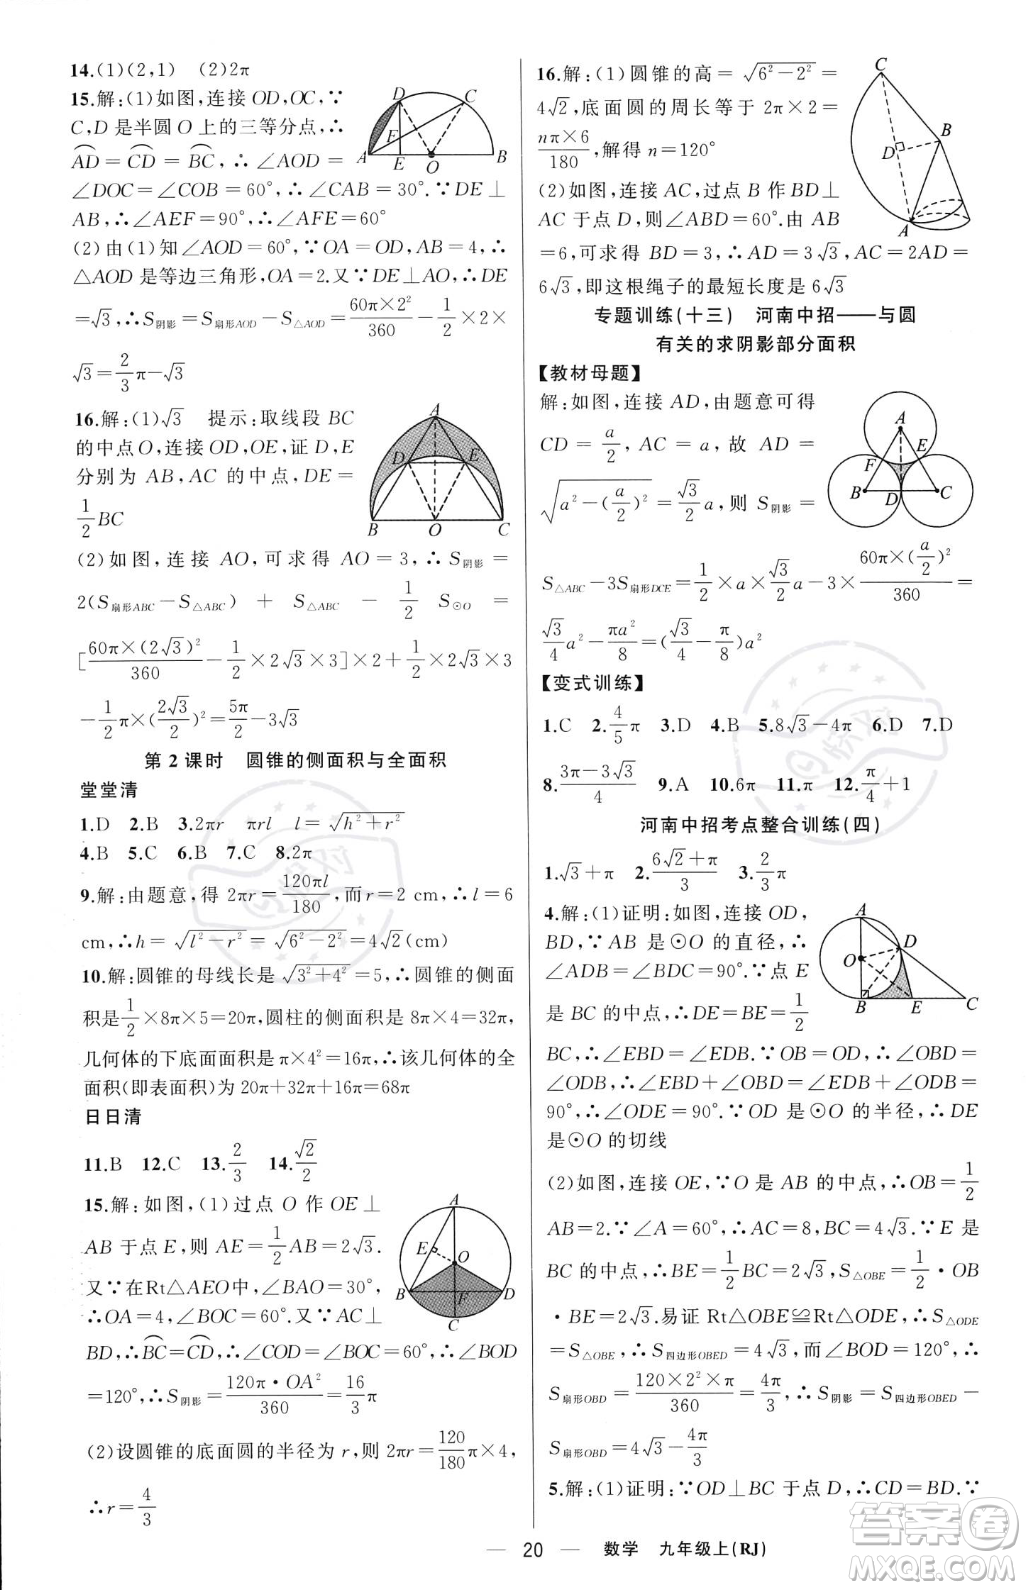 14.(1)(2,1)　(2)2π
15.解:(1)如图,连接OD,OC,∵
C,D是半圆O上的三等分点,∴
⌒AD=⌒CD=⌒BC,∴∠AOD=
∠DOC=∠COB=60°,∴∠CAB=30°.∵DE⊥
AB,∴∠AEF=90°,∴∠AFE=60°
(2)由(1)知∠AOD=60°,∵OA=OD,AB=4,∴
△AOD是等边三角形,OA=2.又∵DE⊥AO,∴DE
=√3,∴S阴影=S扇形AOD-S△AOD=60π×2²/360-1/2×2×
√3=2/3π-√3
16.解:(1)√3　提示:取线段BC
的中点O,连接OD,OE,证D,E
分别为AB,AC的中点,DE=
1/2BC
(2)如图,连接AO,可求得AO=3,∴S阴影=
2(S扇形ABC-S△ABC)+S△ABC-1/2S⊙O=
[60π×(2√3)²/360-1/2×2√3×3]×2+1/2×2√3×3
-1/2π×(2√3/2)²=5π/2-3√3
第2课时　圆锥的侧面积与全面积
堂堂清
1.D　2.B　3.2πr　πrl　l=√(h²+r²)
4.B　5.C　6.B　7.C　8.2π
9.解:由题意,得2πr=120πl/180,而r=2 cm,∴l=6
cm,∴h=√(l²-r²)=√(6²-2²)=4√2(cm)
10.解:圆锥的母线长是√(3²+4²)=5,∴圆锥的侧面
积是1/2×8π×5=20π,圆柱的侧面积是8π×4=32π,
几何体的下底面面积是π×4²=16π,∴该几何体的全
面积(即表面积)为20π+32π+16π=68π
日日清
11.B　12.C　13.2/3　14.√2/2
15.解:如图,(1)过点O作OE⊥
AB于点E,则AE=1/2AB=2√3.
又∵在Rt△AEO中,∠BAO=30°,
∴OA=4,∠BOC=60°.又∵AC⊥
BD,∴⌒BC=⌒CD,∴∠COD=∠BOC=60°,∴∠BOD
=120°,∴S阴影=120π·OA²/360=16/3π
(2)设圆锥的底面圆的半径为r,则2πr=120/180π×4,
∴r=4/3
16.解:(1)圆锥的高=√(6²-2²)=
4√2,底面圆的周长等于2π×2=
nπ×6/180,解得n=120°
(2)如图,连接AC,过点B作BD⊥
AC于点D,则∠ABD=60°.由AB
=6,可求得BD=3,∴AD=3√3,AC=2AD=
6√3,即这根绳子的最短长度是6√3
专题训练(十三)　河南中招——与圆
有关的求阴影部分面积
【教材母题】
解:如图,连接AD,由题意可得
CD=a/2,AC=a,故AD=
√(a²-(a/2)²)=√3/2a,则S阴影=
S△ABC-3S扇形DCE=1/2×a×√3/2a-3×60π×(a/2)²/360=
√3/4a²-πa²/8=(√3/4-π/8)a²
【变式训练】
1.C　2.4/5π　3.D　4.B　5.8√3-4π　6.D　7.D
8.(3π-3√3)/4　9.A　10.6π　11.π　12.π/4+1
河南中招考点整合训练(四)
1.√3+π　2.(6√2+π)/3　3.2/3π
4.解:(1)证明:如图,连接OD,
BD,∵AB是⊙O的直径,∴
∠ADB=∠BDC=90°.∵点E
是BC的中点,∴DE=BE=1/2
BC,∴∠EBD=∠EDB.∵OB=OD,∴∠OBD=
∠ODB,∴∠EBD+∠OBD=∠EDB+∠ODB=
90°,∴∠ODE=90°.∵OD是⊙O的半径,∴DE
是⊙O的切线
(2)如图,连接OE,∵O是AB的中点,∴OB=1/2
AB=2.∵∠A=60°,∴AC=8,BC=4√3.∵E是
BC的中点,∴BE=1/2BC=2√3,S△OBE=1/2·OB
·BE=2√3.易证Rt△OBE≌Rt△ODE,∴S△ODE
=S△OBE,∴S四边形OBED=4√3,而∠BOD=120°,∴
S扇形OBD=120×2²×π/360=4π/3,∴S阴影=S四边形OBED-
S扇形OBD=4√3-4π/3
5.解:(1)证明:∵OD⊥BC于点D,∴CD=BD.∵
20　数学　九年级上(RJ)
答案圈
MXQE.COM